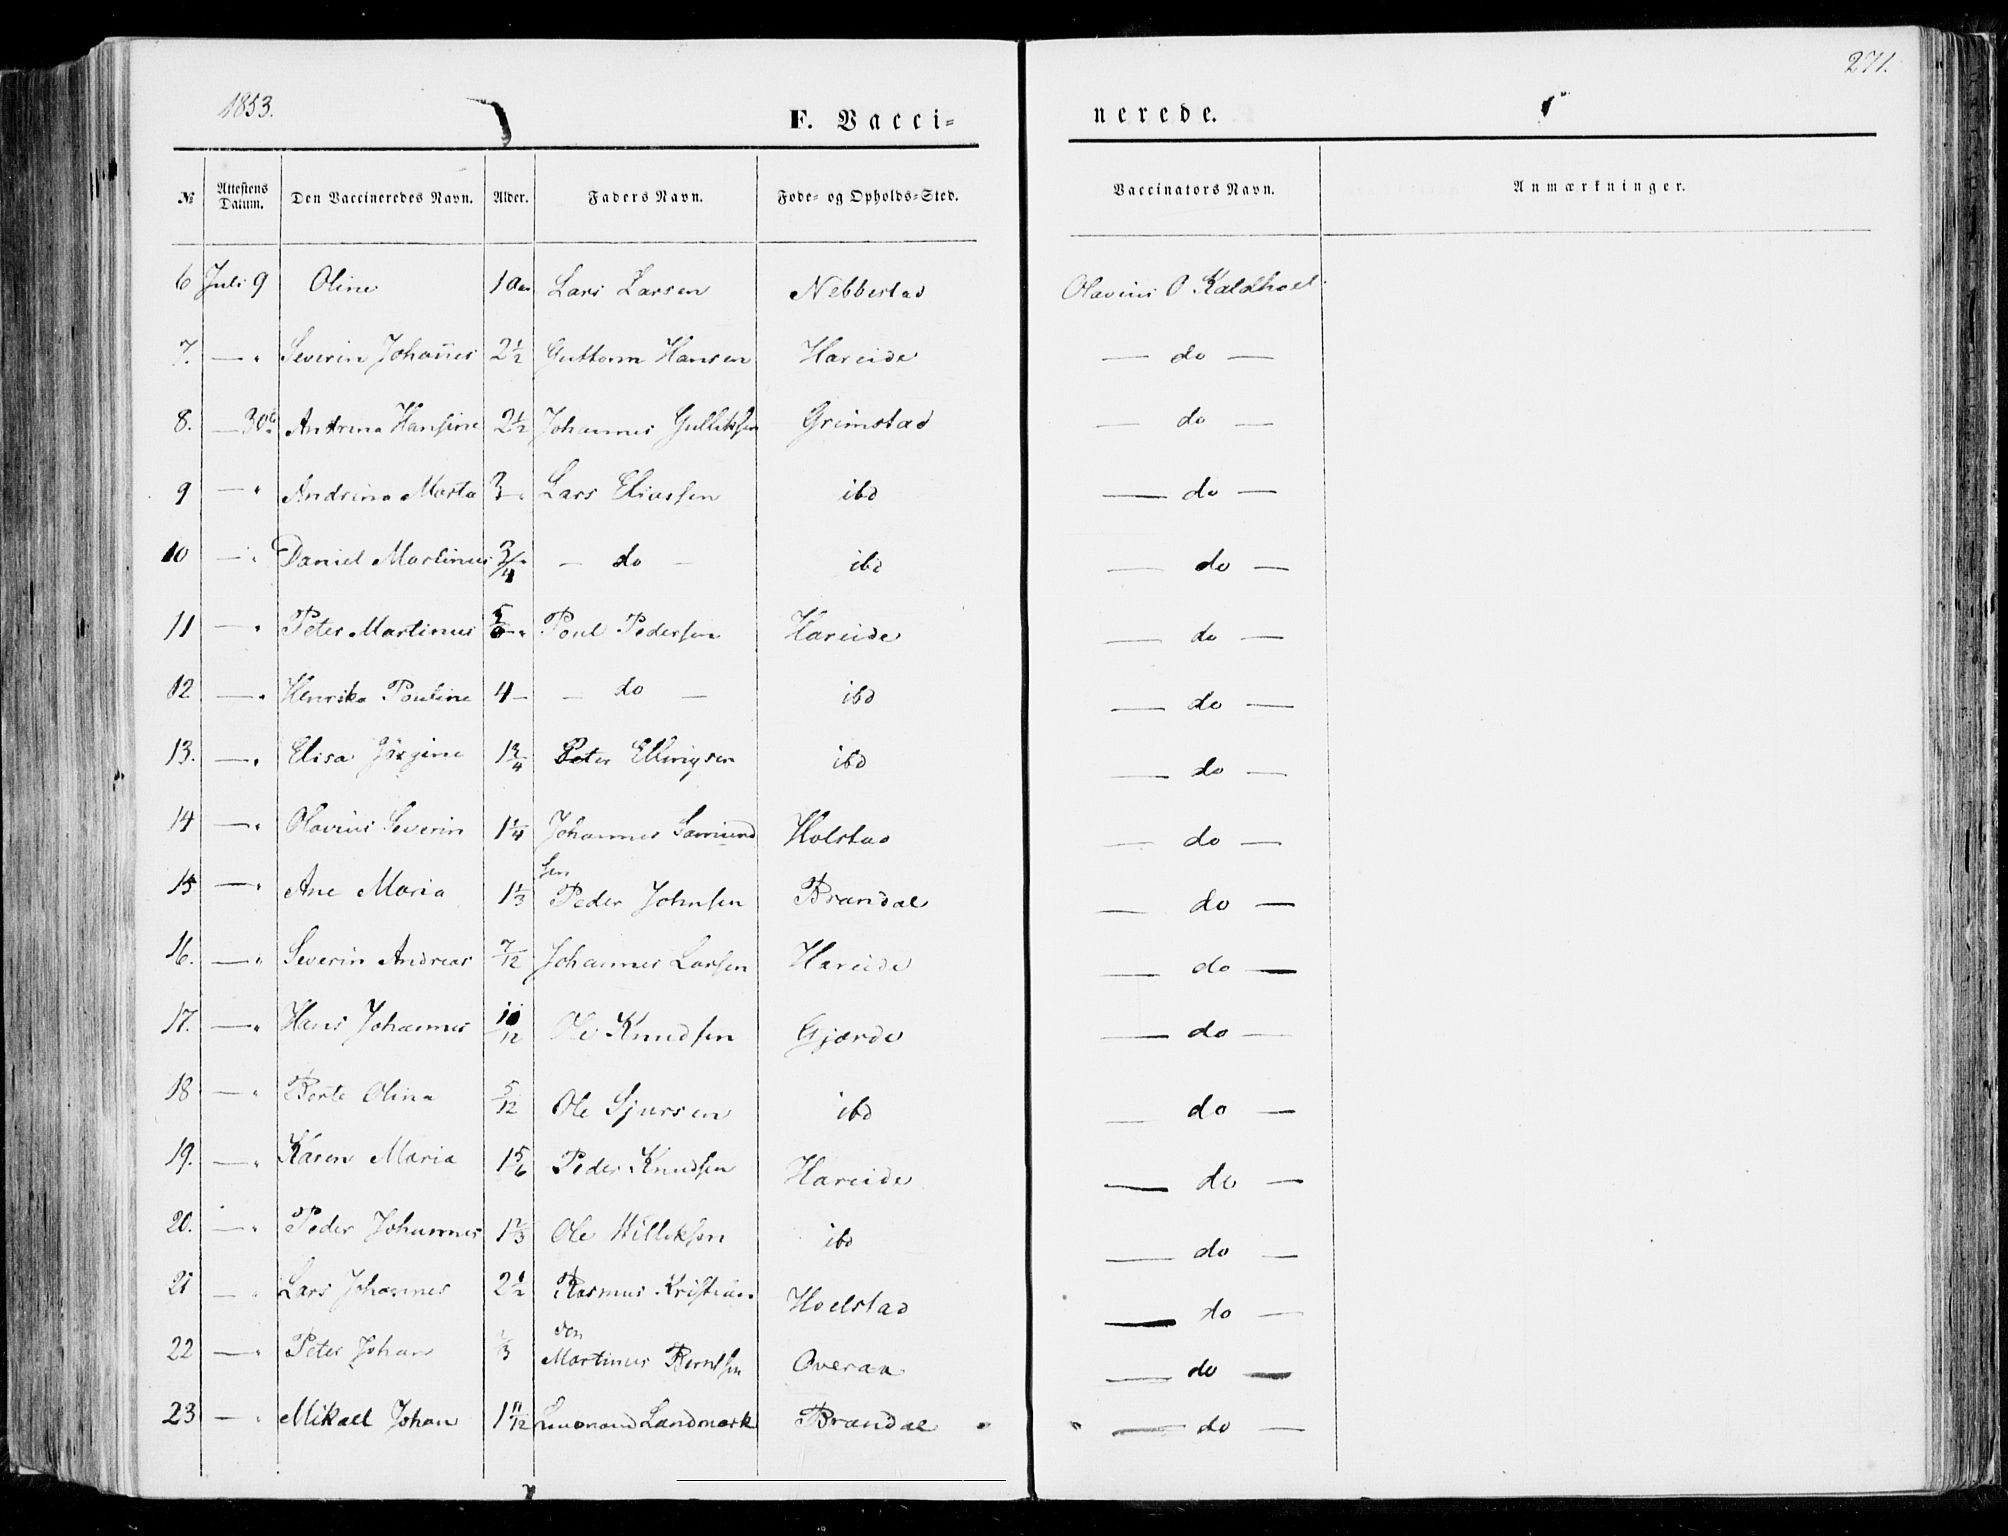 1853.
271.
F. Vacci=
nerede.
№ Attestens Datum. Den Vaccineredes Navn. Alder. Faders Navn. Føde= og Opholds=Sted. Vaccinators Navn. Anmærkninger.
6 Juli 9 Oline 1 Lars Larsen Nebbestad Olavius O Kaldhoel
7. — " Severin Johañes 2½ Guttorm Hansen Hareide — do —
8. — 30 Andrina Hansine 2½ Johannes Gulliksen Grimstad — do —
9 — " Andrina Marta 3 - Lars Eliassen ibd — do —
10 — " Daniel Martinus 3/4 — do — ibd — do —
11 — " Peter Martinus Poul Pedersen Hareide — do —
12 — " Henrika Pouline 4 — — do — ibd — do —
13. — " Elisa Jørgine 1¾ Peter Ellingsen ibd — do —
14 — " Olavius Severin 1¼ Johannes Samund Holstad — do —
sen
15 — " Ane Maria 1⅓ Peder Johnsen Brandal — do —
16. — " Severin Andreas 7/12 Johannes Larsen Hareide — do —
17. — " Hans Johannes 10/12 Ole Knudsen Gjærde — do —
18 — " Berte Olina 5/12 Ole Sjursen ibd — do —
19. — " Karen Maria 1 5/6 Peder Knudsen Hareide — do —
20. — " Peder Johannes 1⅔ Ole Williksen ibd — do —
21 — " Lars Johannes 2½ Rasmus Kristian Hoelstad — do —
sen
22 — " Peter Johan Martinus Berntsen Overaa — do —
23 — " Mikael Johan 1 11/12 Landmark Brandal — do —